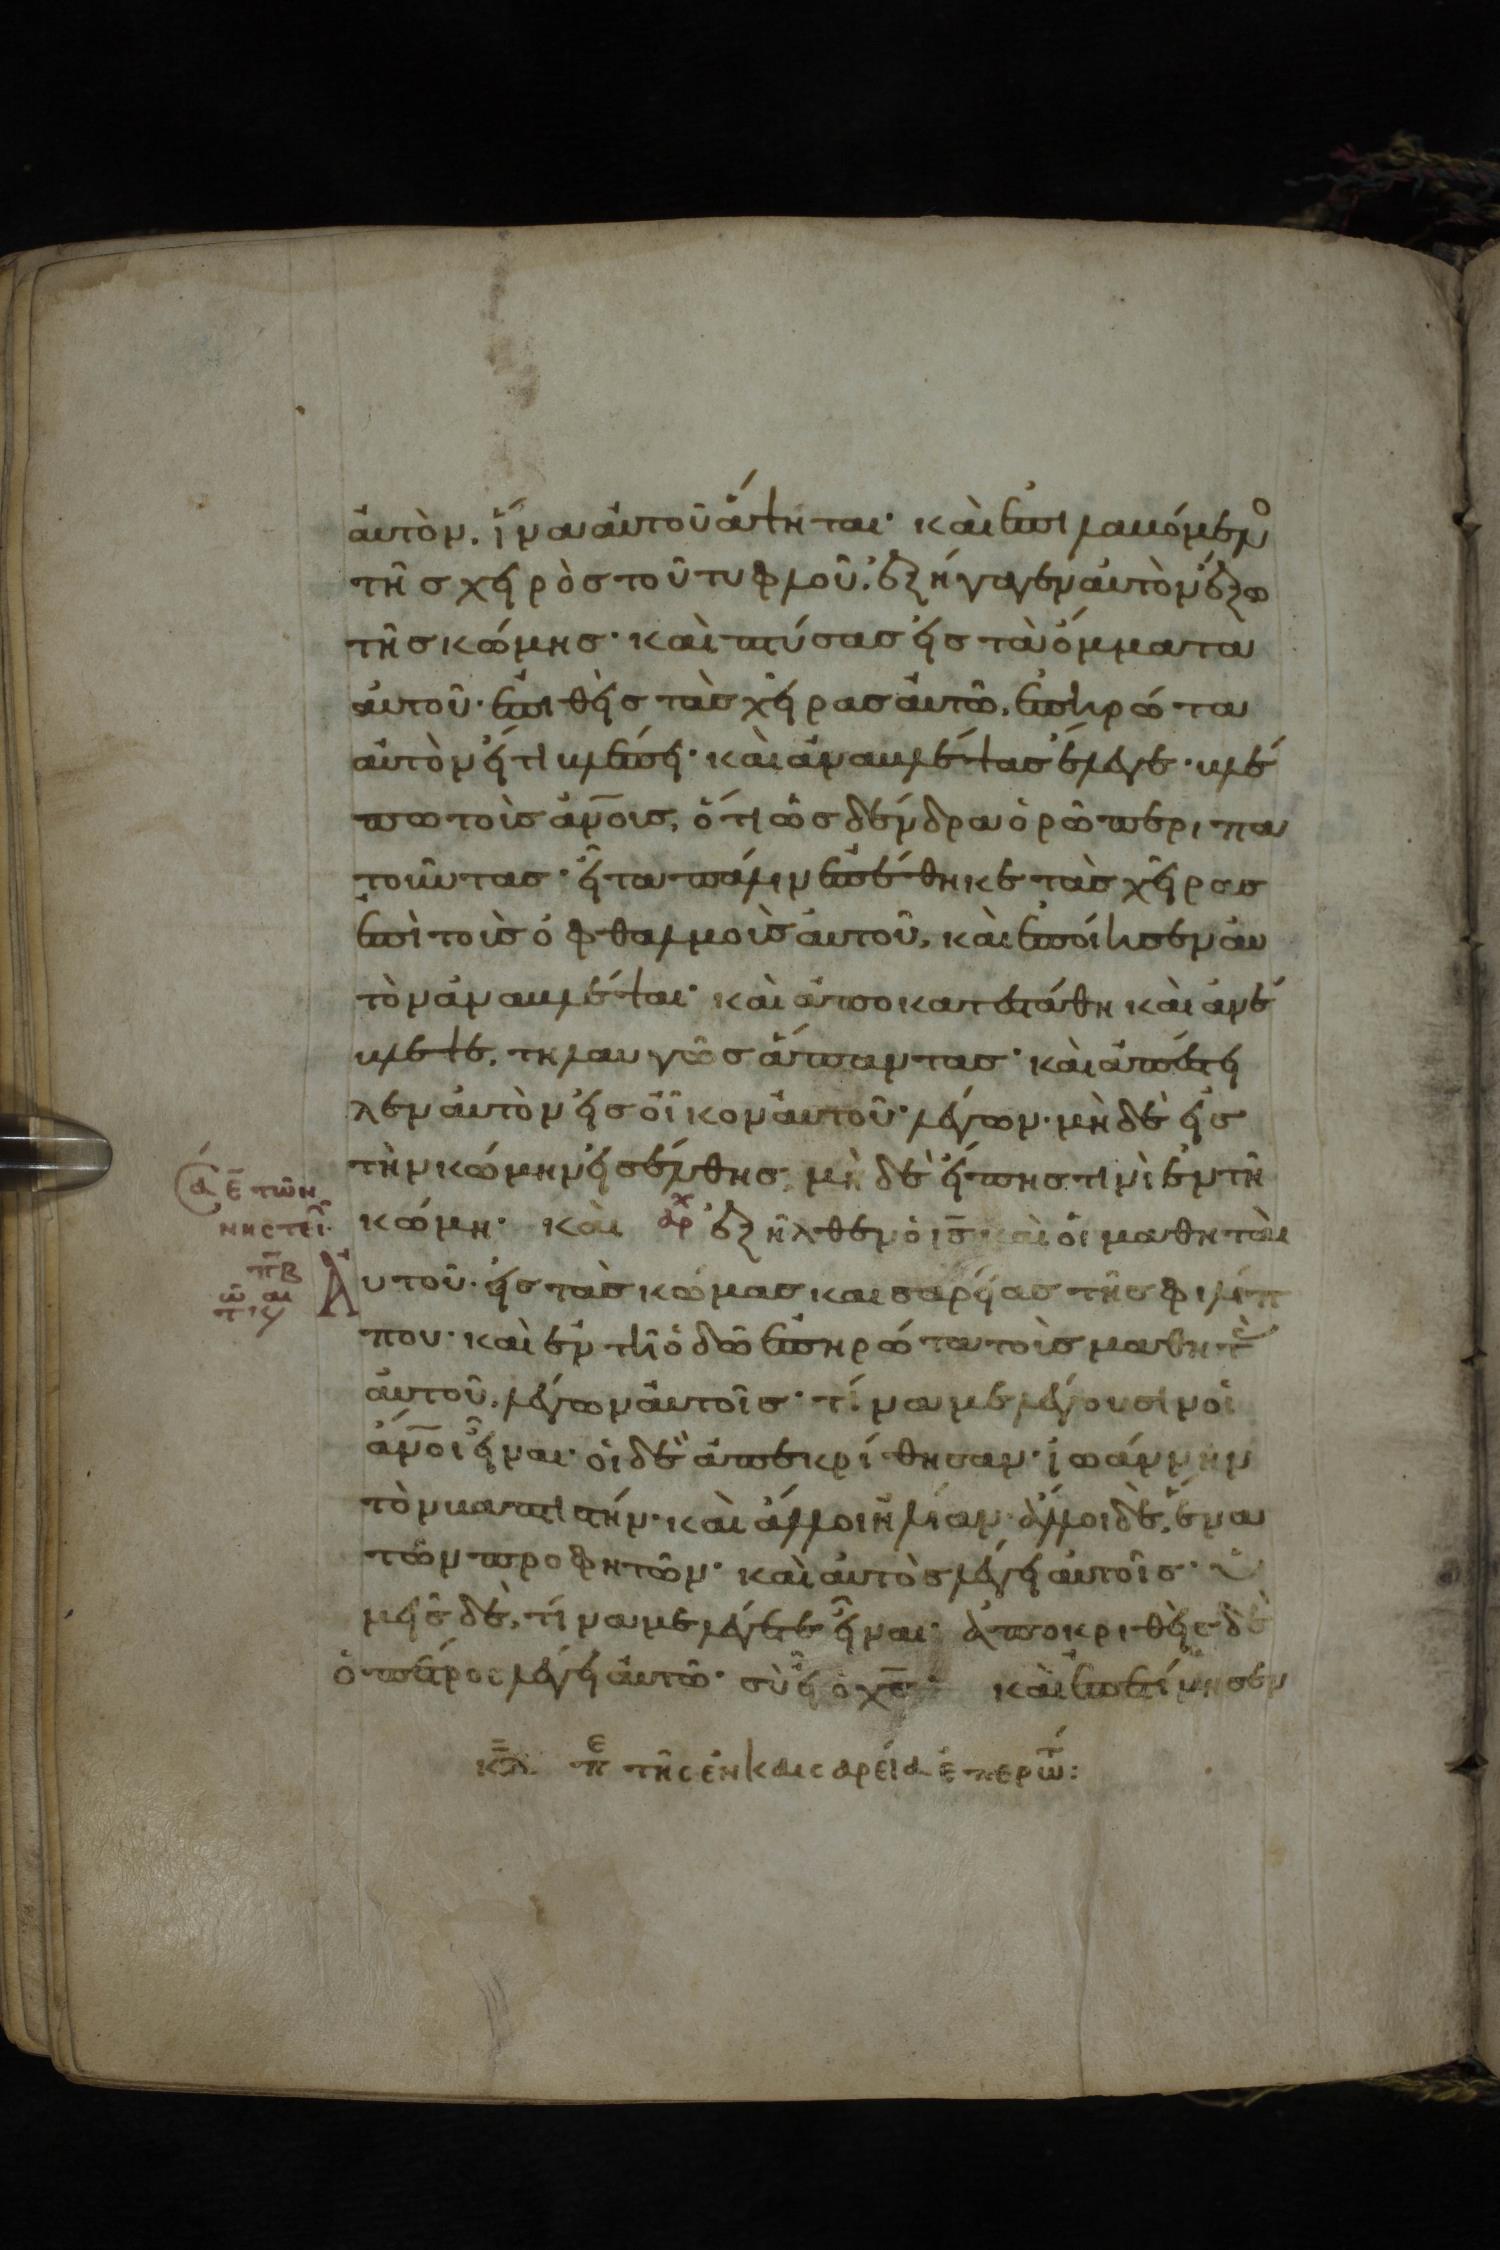 αὐτὸν. ἵνα αὐτοῦ ἅψηται· καὶ ἐπιλαβόμενο
τῆς χειρὸς τοῦ τυφλοῦ. ἐξήγαγεν αὐτὸν ἔξω
τῆς κώμης· καὶ πτύσας εἰς τὰ ὄμματα
αὐτοῦ· ἐπιθεὶς τὰς χεῖρας αὐτῶ, ἐπηρώτα
αὐτὸν εἴ τι βλέπει· καὶ ἀναβλέψας ἔλεγε· βλέ
πω τοὺς ἀν̅ους, ὅτι ὡς δένδρα ὁρῶ περιπα
τοῦντας· εἶτα πάλιν ἐπέθηκε τὰς χεῖρας
ἐπὶ τοὺς ὀφθαλμοὺς αὐτοῦ, καὶ ἐποίησεν αὐ
τὸν ἀναβλέψαι· καὶ ἀποκατεστάθη καὶ ἀνέ
βλεψε, τηλαυγῶς ἅπαντας· καὶ ἀπέστει
λεν αὐτὸν εἰς οἶκον αὐτοῦ· λέγων· μὴ δὲ εἰς
τὴν κώμην εἰσέλθης, μὴ δὲ εἴπης τινὶ ἐν τῆ
α ε̅ τῶν
νηστει
κώμη· καὶ αρχ ἐξῆλθεν ὁ ι̅ς̅ καὶ οἱ μαθηταὶ
π̅β
ἀυτοῦ· εἰς τὰς κώμας καισαρείας τῆς φιλίπ
που· καὶ ἐν τῆ ὁδῶ ἐπηρώτα τοὺς μαθητὰς
αὐτοῦ, λέγων αὐτοῖς· τίνα με λέγουσιν οἱ
ἄν̅οι εἶναι· οἱ δὲ ἀπεκρίθησαν· ἰωάννην
τὸν βαπτιστήν· καὶ ἄλλοι ἠλίαν· ἄλλοι δὲ, ἕνα
τῶν προφητῶν· καὶ αὐτὸς λέγει αὐτοῖς· ὑ
μεῖς δὲ, τίνα με λέγετε εἶναι· ἀποκριθεὶς δὲ
ὁ πέτρος λέγει αὐτῶ· σὺ εἶ ὁ χ̅ς̅· καὶ ἐπετίμησεν
π ε τῆς ἐν καισαρεία ἐπερωτ: